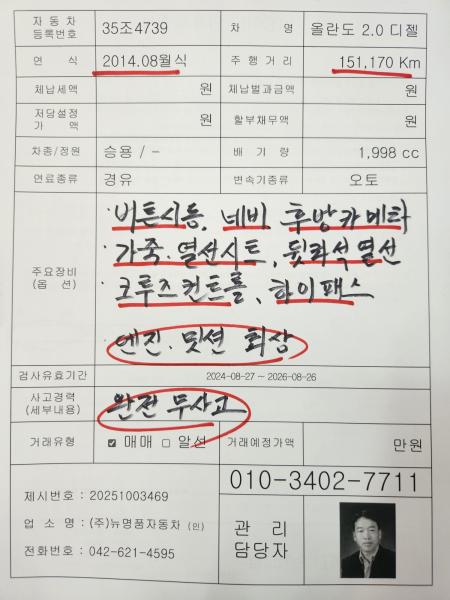 자동차 등록번호 35조4739 차 명 올란도 2.0 디젤
연 식 2014.08월식 주행거리 151,170 Km
체납세액 원 체납벌과금액 원
저당설정 가 액 원 할부채무액 원
차종/정원 승용 / - 배 기 량 1,998 cc
연료종류 경유 변속기종류 오토
주요장비 (옵 션)
· 버튼시동, 네비, 후방카메라
· 가죽·열선시트, 뒷좌석열선
· 크루즈컨트롤, 하이패스
엔진·밋션 최상
검사유효기간 2024-08-27 ~ 2026-08-26
사고경력 (세부내용) 완전 무사고
거래유형 ☑ 매매 □ 알선 거래예정가액 만원
010-3402-7711
제시번호 : 20251003469
업 소 명 : (주)뉴명품자동차 (인)
전화번호 : 042-621-4595
관 리
담당자